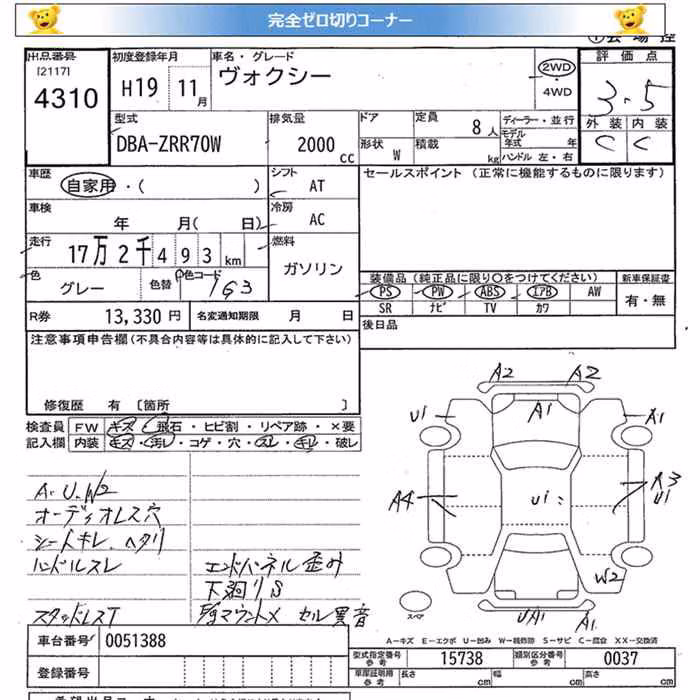 完全ゼロ切りコーナー
出品番号
[2117]
4310
初度登録年月
H19 11月
車名・グレード
ヴォクシー
2WD
・
4WD
評価点
3.5
外装 内装
C C
型式
DBA-ZRR70W
排気量
2000 cc
ドア
形状 W
定員
8人
積載 kg
ディーラー・並行
モデル年式 年
ハンドル 左・右
車歴
自家用・( )
シフト
AT
セールスポイント(正常に機能するものに限ります)
車検
年 月( 日)
冷房
AC
走行
17万2千493km
燃料
ガソリン
色
グレー
色替
色コード
1G3
装備品(純正品に限り〇をつけてください)
新車保証書
PS PW ABS エアB AW
有・無
SR ナビ TV カワ
R券 13,330円
名変通知期限 月 日
後日品
注意事項申告欄(不具合内容等は具体的に記入して下さい)
修復歴 有 〔箇所 〕
検査員記入欄
FW キズ・飛石・ヒビ割・リペア跡・×要
内装 キズ・汚レ・コゲ・穴・スレ・キレ・破レ
A.U.W2
オーディオレス穴
シートキレ、ヘタリ
ハンドルスレ
スタッドレスT
エンドパネル歪み
下廻りS
セル異音
A2 A2
U1 A1 A1
A4 U1 A3
U1
W2
UA1 A1
スペア
A−キズ E−エクボ U−凹み W−補修跡 S−サビ C−腐食 XX−交換済
車台番号 0051388
登録番号
型式指定番号
参考
15738
類別区分番号
参考
0037
車庫証明用
参考
長さ cm
幅 cm
高さ cm